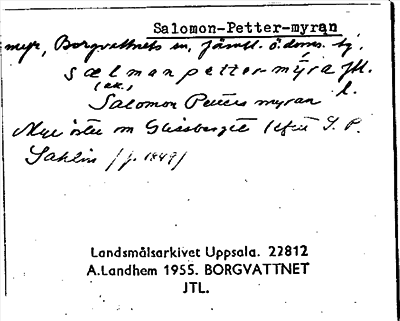 Salomon-Petter-myran
myr, Borgvattnets sn, Jämtl. ö. doms. tj.
sælmanpetter-mỳra jtl.
(ek.)
Salomon Petters myran l.
Myr öster om Glissberget (efter S. P.
Sahlin (f. 1849)
Landsmålsarkivet Uppsala. 22812
A.Landhem 1955. BORGVATTNET
JTL.